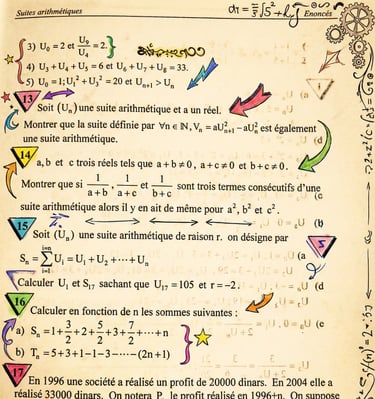 Suites arithmétiques
Enoncés
3) U₀ = 2 et U₀/U₄ = 2.
4) U₃ + U₄ + U₅ = 6 et U₆ + U₇ + U₈ = 33.
5) U₀ = 1; U₁² + U₂² = 20 et Uₙ₊₁ > Uₙ
13
Soit (Uₙ) une suite arithmétique et a un réel.
Montrer que la suite définie par ∀n ∈ ℕ, Vₙ = aU²ₙ₊₁ - aU²ₙ est également
une suite arithmétique.
14
a, b et c trois réels tels que a + b ≠ 0, a + c ≠ 0 et b + c ≠ 0.
Montrer que si 1/(a+b), 1/(a+c) et 1/(b+c) sont trois termes consécutifs d'une
suite arithmétique alors il y en ait de même pour a², b² et c².
15
Soit (Uₙ) une suite arithmétique de raison r. on désigne par
Sₙ = ∑ᵢ₌₁ⁱ⁼ⁿ Uᵢ = U₁ + U₂ + ··· + Uₙ
Calculer U₁ et S₁₇ sachant que U₁₇ = 105 et r = -2.
16
Calculer en fonction de n les sommes suivantes :
a) Sₙ = 1 + 3/2 + 2 + 5/2 + 3 + 7/2 + ··· + n
b) Tₙ = 5 + 3 + 1 - 1 - 3 - ···· - (2n+1)
17
En 1996 une société a réalisé un profit de 20000 dinars. En 2004 elle a
réalisé 33000 dinars. On notera Pₙ le profit réalisé en 1996+n. On suppose